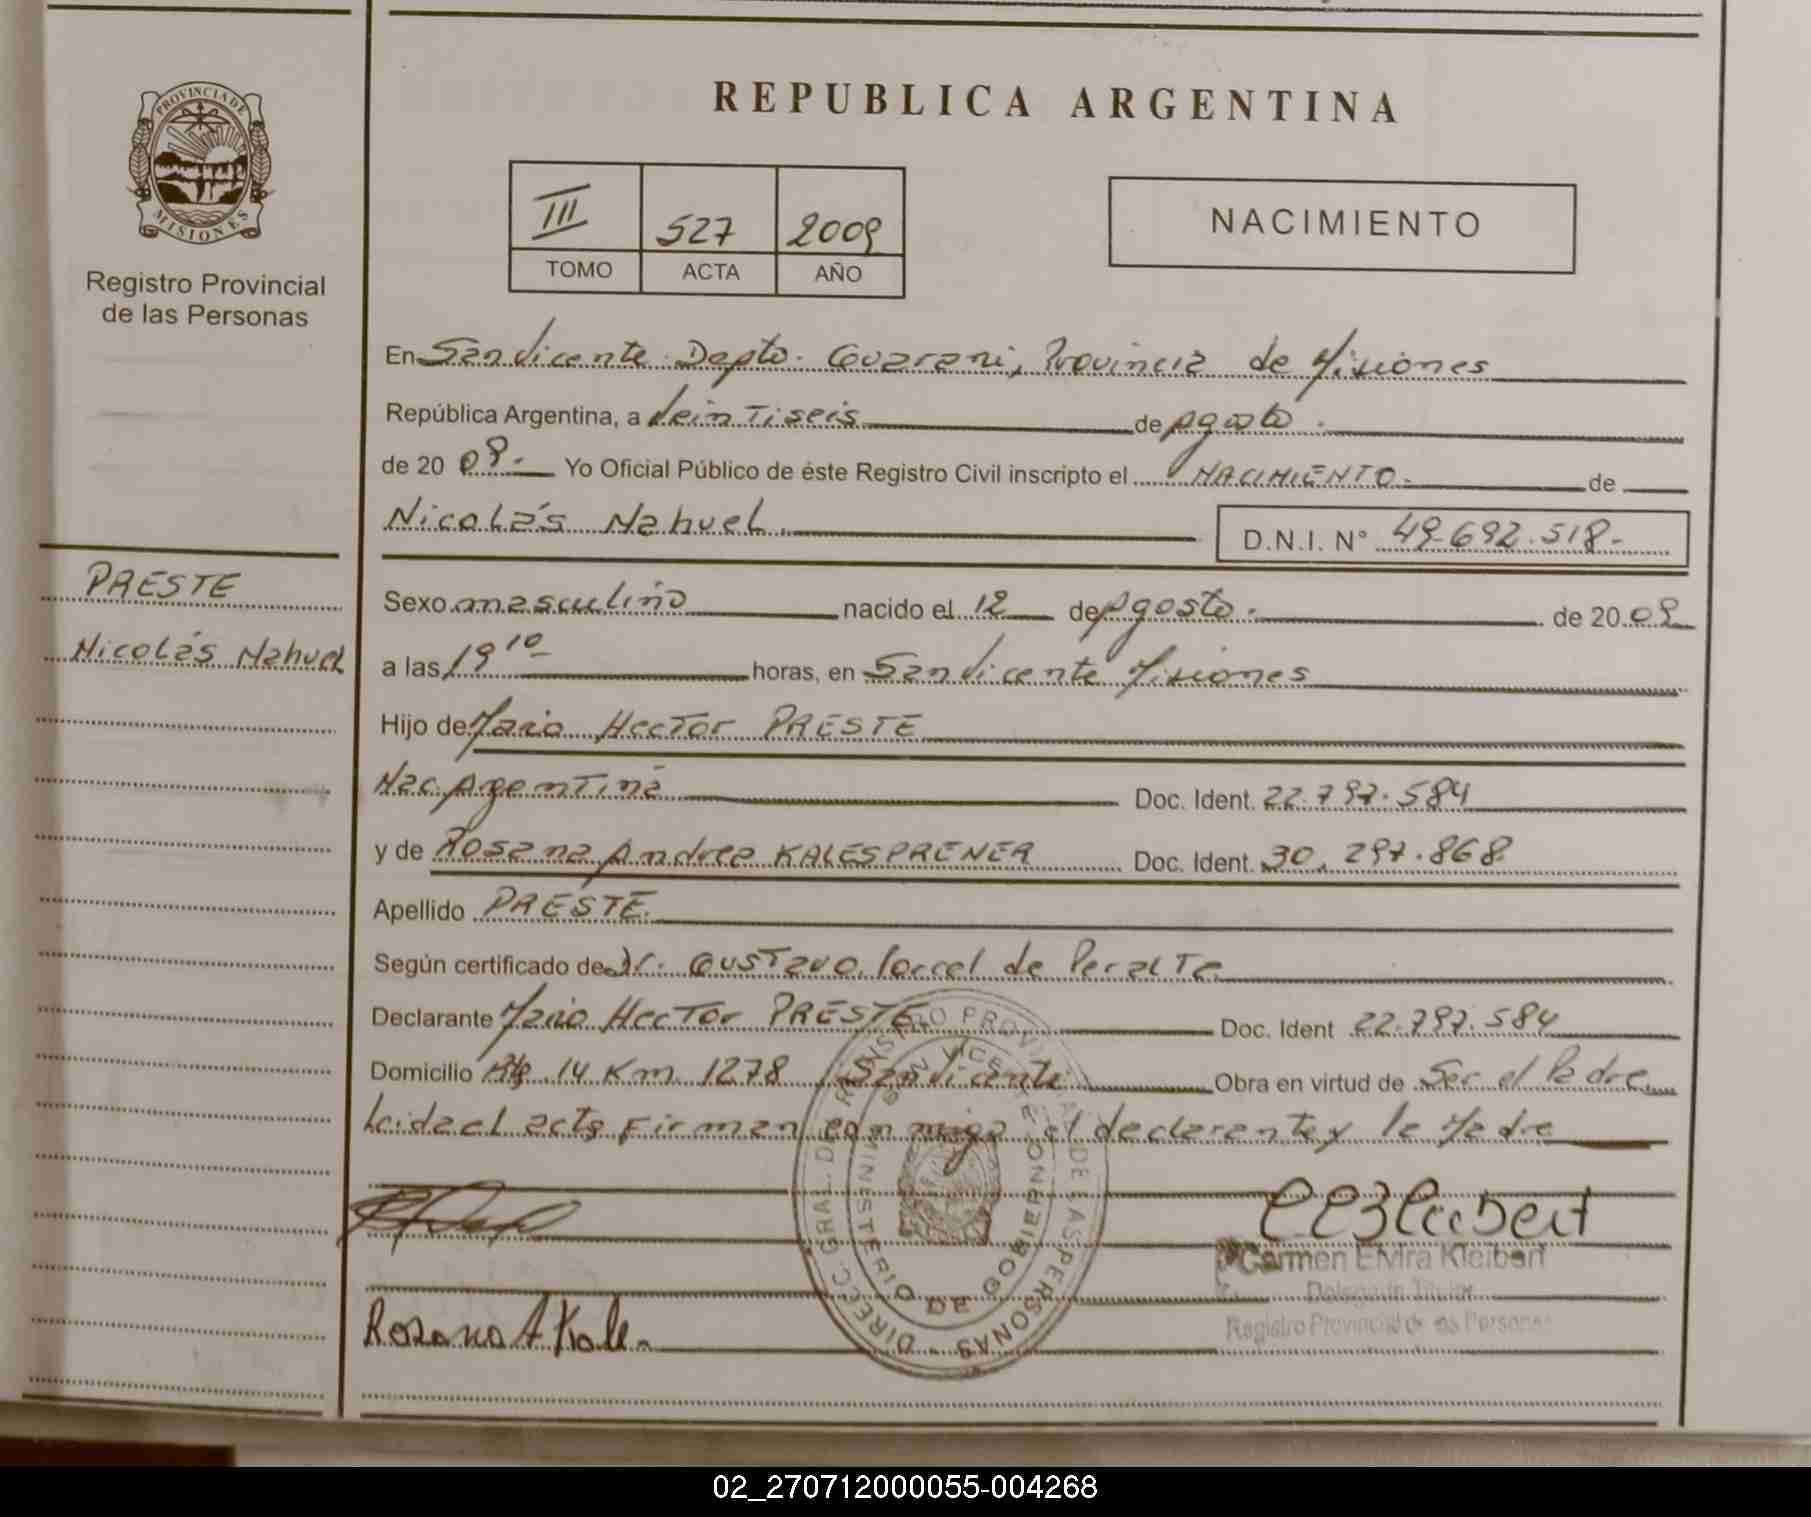 REPUBLICA ARGENTINA
PROVINCIA DE MISIONES
Registro Provincial
de las Personas
III 527 2009
TOMO ACTA AÑO
NACIMIENTO
En San Vicente Depto. Guarani, Provincia de Misiones
República Argentina, a Veintiseis de Agosto.
de 20 09.- Yo Oficial Público de éste Registro Civil inscripto el NACIMIENTO.- de
Nicolás Nahuel. D.N.I. N° 49.692.518.-
PRESTE
Nicolás Nahuel
Sexo masculino nacido el 12 de Agosto. de 20 09
a las 19 10 horas, en San Vicente Misiones
Hijo de Mario Hector PRESTE
Nac. Argentina Doc. Ident. 22.797.584
y de Rosana Andrea KALESPRENER Doc. Ident. 30.297.868
Apellido PRESTE.
Según certificado de Dr. Gustavo Porcel de Peralta
Declarante Mario Hector PRESTE Doc. Ident 22.797.584
Domicilio 14 Km. 1278 San Vicente Obra en virtud de Ser el Padre
Leida el acta Firman conmigo el declarante y la Madre
DIRECC. GRAL. DE REGISTRO PROVINCIAL DE LAS PERSONAS
SAN VICENTE
MINISTERIO DE GOBIERNO
Carmen Elvira Kleibert
Delegada Titular
Registro Provincial de las Personas
Rosana A Kale.
02_270712000055-004268